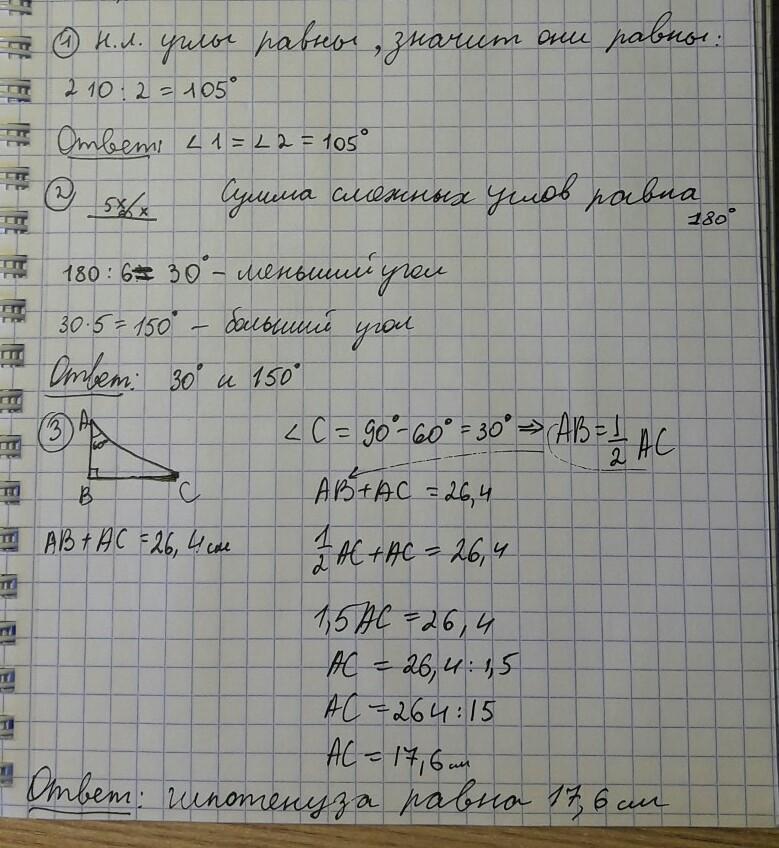 ① н.л. углы равны, значит они равны:
210 : 2 = 105°
Ответ: ∠1 = ∠2 = 105°
② 5x x Сумма смежных углов равна 180°
180 : 6 = 30° – меньший угол
30·5 = 150° – больший угол
Ответ: 30° и 150°
③ A 60° B C ∠C = 90° – 60° = 30° ⇒ AB = 1/2 AC
AB + AC = 26,4
AB + AC = 26,4 см
1/2 AC + AC = 26,4
1,5AC = 26,4
AC = 26,4 : 1,5
AC = 264 : 15
AC = 17,6 см
Ответ: гипотенуза равна 17,6 см